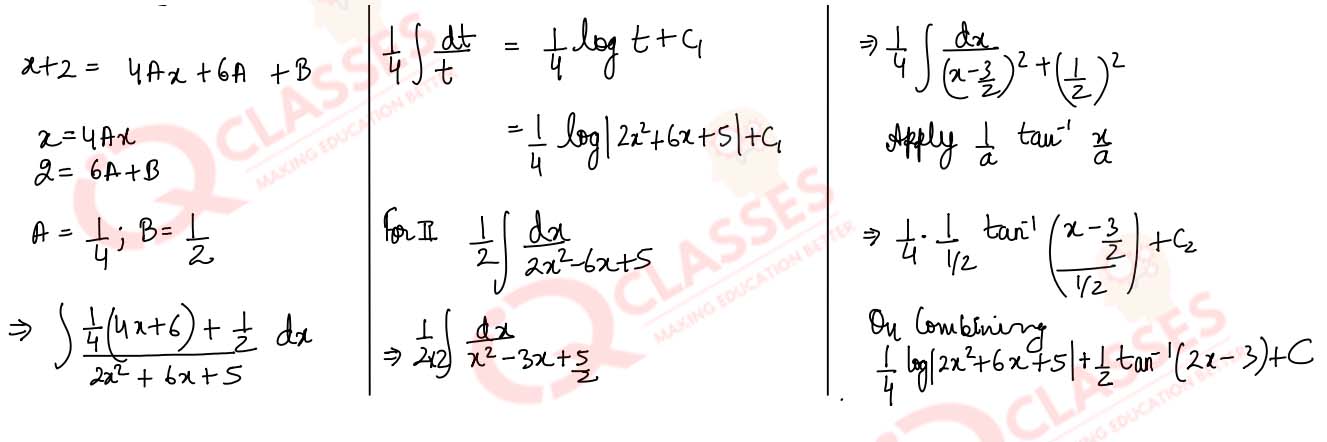 x+2 = 4Ax+6A +B
x=4Ax
2= 6A+B
A = 1/4 ; B= 1/2
⇒ ∫ (1/4(4x+6) + 1/2)/(2x²+6x+5) dx
1/4 ∫ dt/t = 1/4 log t+C₁
= 1/4 log|2x²+6x+5|+C₁
For II 1/2 ∫ dx/(2x²-6x+5)
⇒ 1/(2×2) ∫ dx/(x²-3x+5/2)
⇒ 1/4 ∫ dx/((x-3/2)²+(1/2)²)
Apply 1/a tan⁻¹ x/a
⇒ 1/4 · 1/(1/2) tan⁻¹ ((x-3/2)/(1/2)) +C₂
On Combining
1/4 log|2x²+6x+5|+1/2 tan⁻¹(2x-3)+C
CLASSES
MAKING EDUCATION BETTER
CLASSES
MAKING EDUCATION BETTER
CLASSES
MAKING EDUCATION BETTER